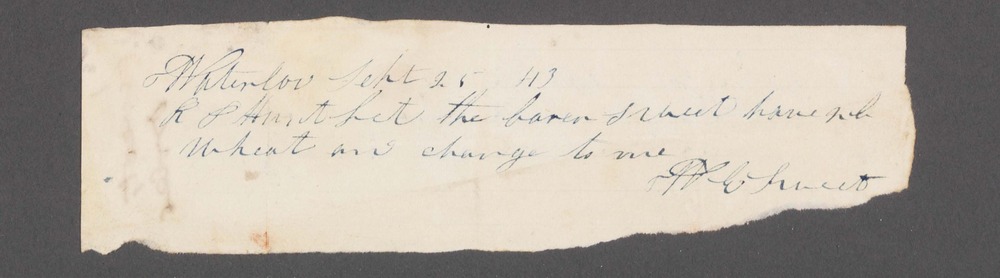 Waterloo Sept 25 43
R P Hunt Let the barer Sweet have
Wheat and change to me
W G Sweet